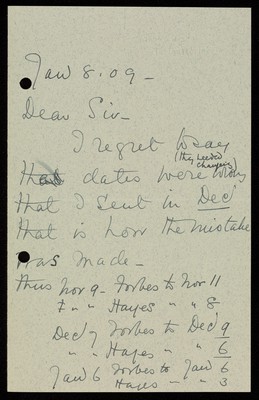 Jan 8. 09 -
Dear Sir -
I regret to say
(they needed changing)
that dates were wrong
that I sent in Dec
that is how the mistake
was made -
thus Nov 9 - Forbes to Nov 11
" " Hayes " " 8
Dec 7 Forbes to Dec 9
" " Hayes " " 6
Jan 6 Forbes to Jan 6
Hayes " " 3